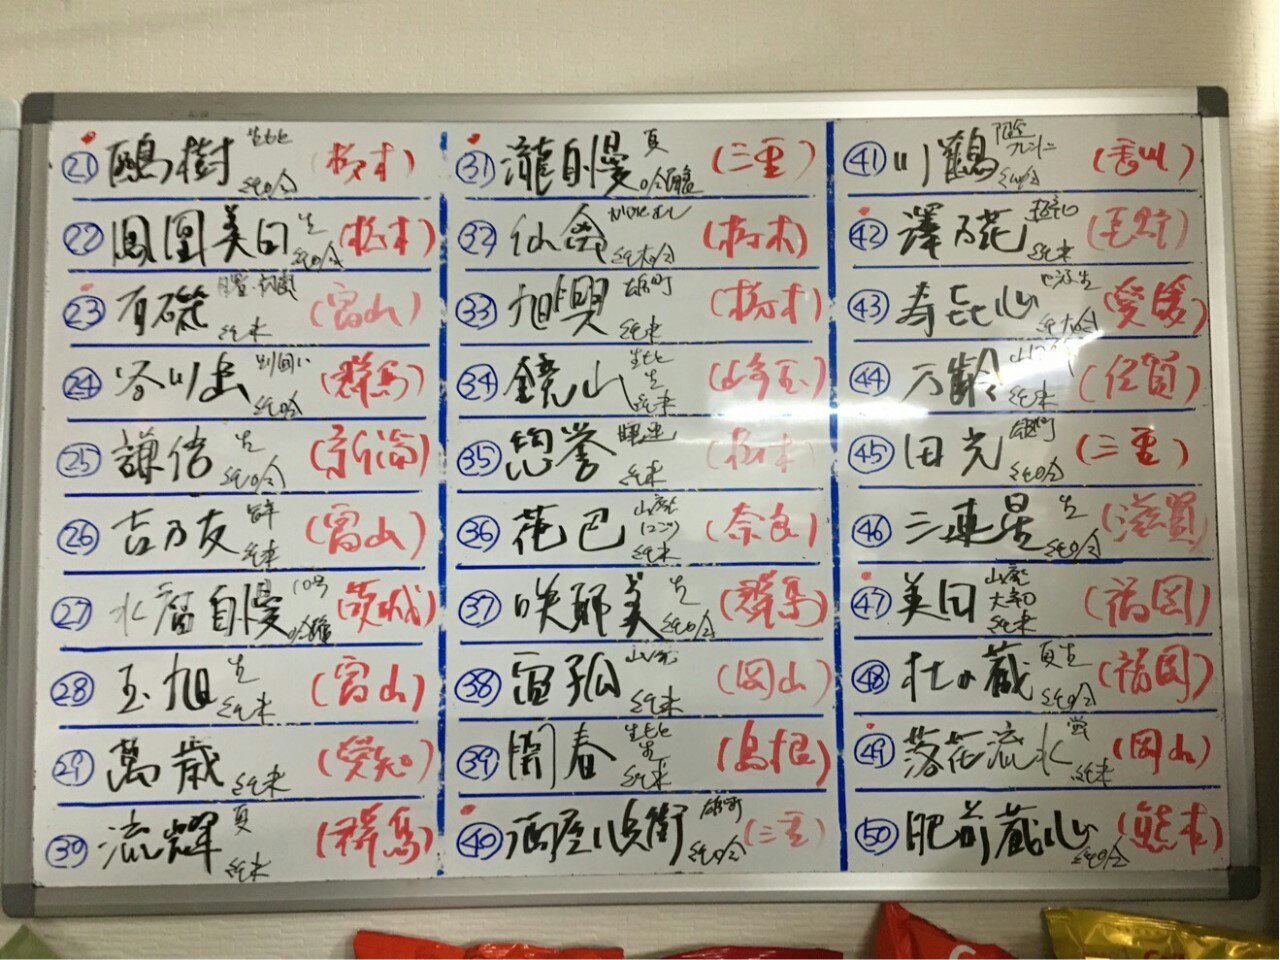 ㉑ 鷗樹 生もと 純吟 (栃木)
㉒ 鳳凰美田 生 純吟 (栃木)
㉓ 有磯 純米 (富山)
㉔ 谷川岳 純吟 (群馬)
㉕ 謙信 生 純吟 (新潟)
㉖ 吉乃友 純米 (富山)
㉗ 水府自慢 10号 (茨城)
㉘ 玉旭 生 純米 (富山)
㉙ 萬歳 純米 (愛知)
㉚ 流輝 夏 純米 (群馬)
㉛ 瀧自慢 夏 (三重)
㉜ 仙禽 (栃木)
㉝ 旭興 雄町 純米 (栃木)
㉞ 鏡山 生もと 生 純米 (埼玉)
㉟ 惣誉 純米 (栃木)
㊱ 花巴 山廃 純米 (奈良)
㊲ 咲耶美 生 純吟 (群馬)
㊳ 宙狐 山廃 純米 (岡山)
㊴ 開春 生もと 純米 (島根)
㊵ 酒屋八兵衛 雄町 純吟 (三重)
㊶ 川鶴 純吟 (香川)
㊷ 澤乃花 純米
㊸ 寿喜心 純吟 (愛媛)
㊹ 万齢 純米 (佐賀)
㊺ 田光 雄町 純吟 (三重)
㊻ 三連星 生 純吟 (滋賀)
㊼ 美田 山廃 大辛口 純米 (福岡)
㊽ 杜の蔵 夏生 純吟 (福岡)
㊾ 落花流水 蛍 純米 (岡山)
㊿ 肥前蔵心 純吟 (熊本)